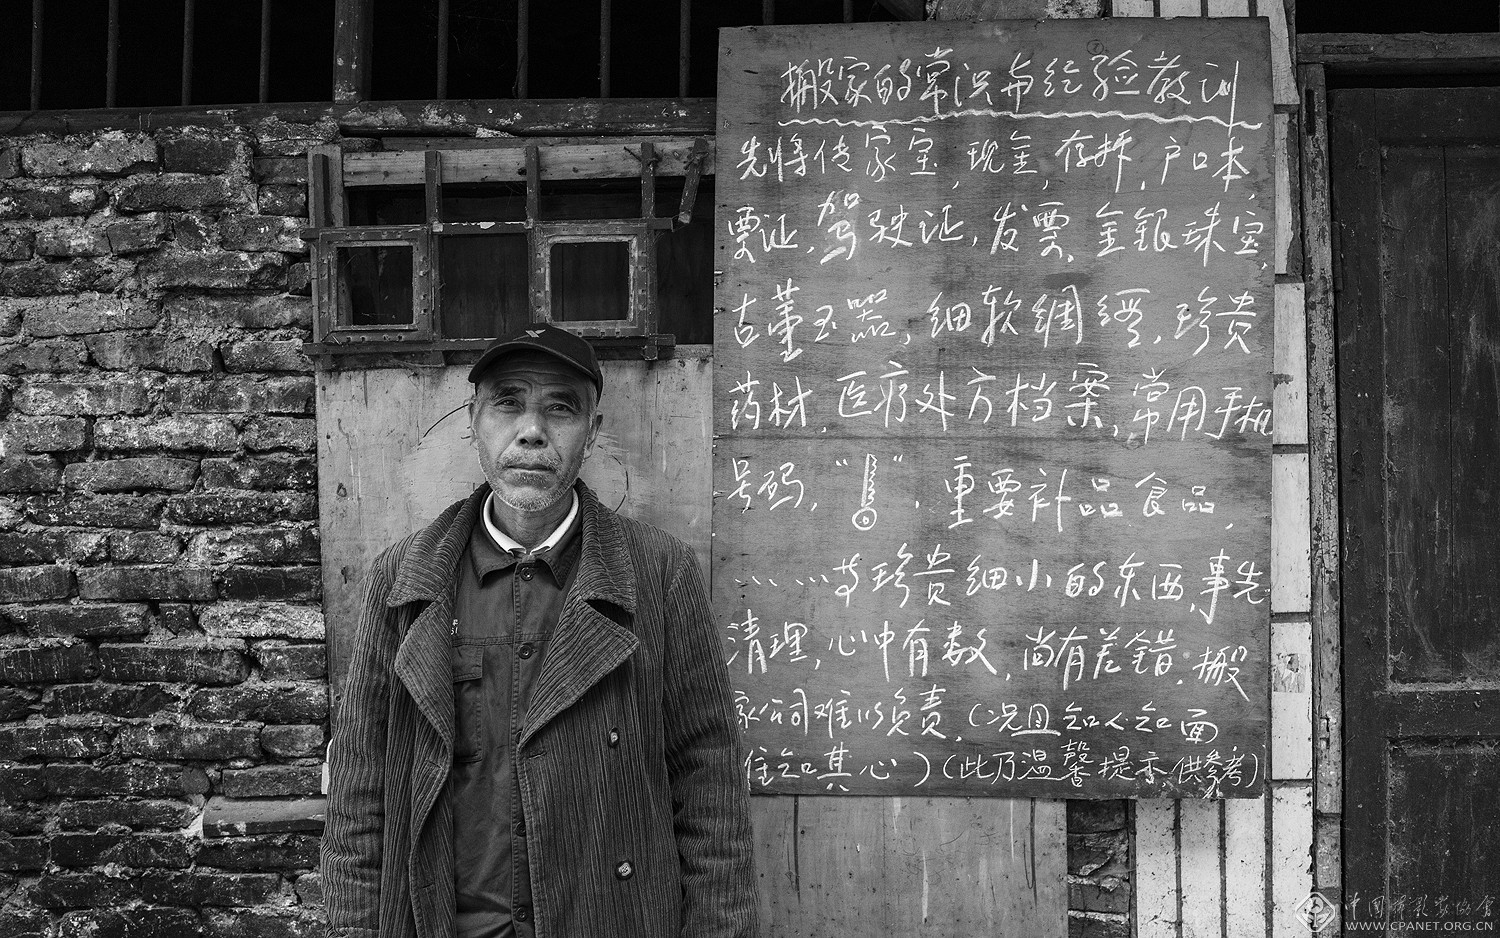 搬家的常识与经验教训
先将传家宝,现金,存折,户口本,
票证,驾驶证,发票,金银珠宝,
古董玉器,细软绸缎,珍贵
药材,医疗处方档案,常用手机
号码,“ ”,重要补品食品,
………等珍贵细小的东西,事先
清理,心中有数,尚有差错,搬
家公司难以负责,(况且知人知面
难知其心)(此乃温馨提示,供参考)
中国摄影家协会
WWW.CPANET.ORG.CN